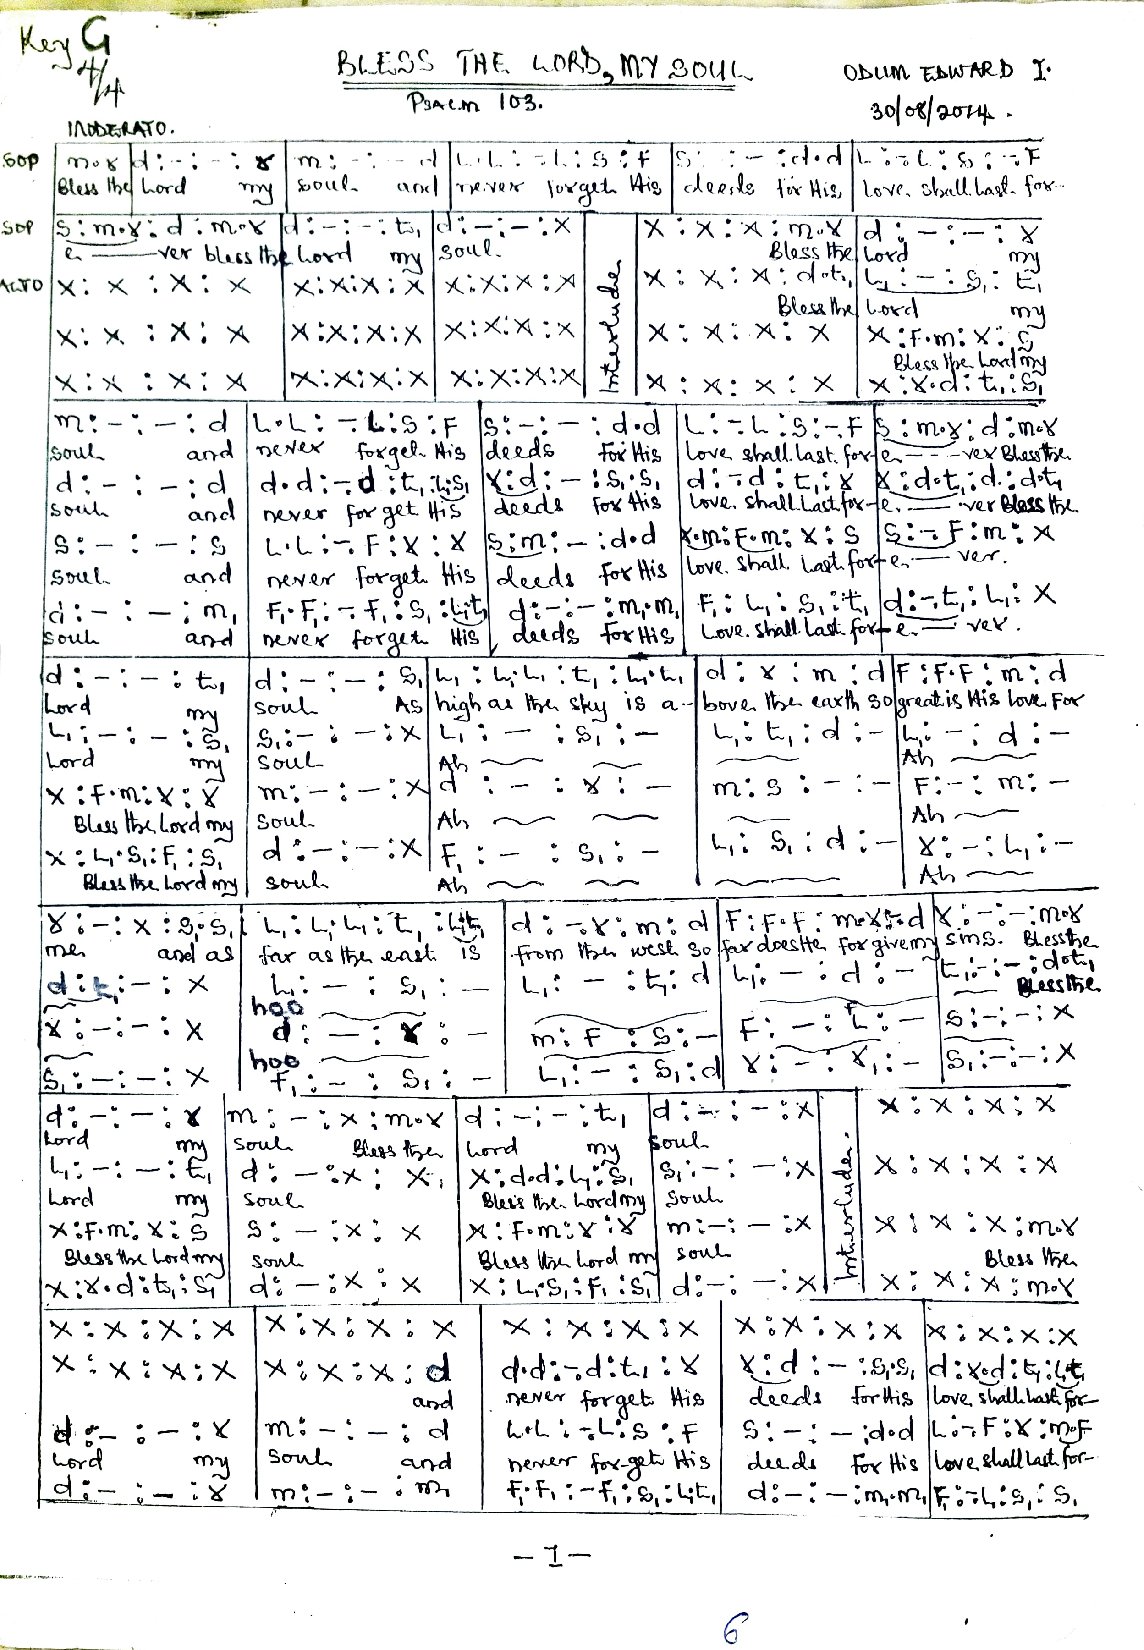 Key G
4/4
BLESS THE LORD, MY SOUL
ODUM EDWARD I.
PSALM 103.
30/08/2014.
MODERATO.
SOP m.r | d : - : - : r | m : - : - d | L.L : - L : S : F | S : - : - : d.d | L : - L : S : - . F
Bless the Lord my soul and never forget His deeds for His love shall last for-
SOP S : m.r : d : m.r | d : - : - : t, | d : - : - : x | Interlude | x : x : x : m.r | d : - : - : r
e ——— ver bless the Lord my soul. Bless the Lord my
ALTO x : x : x : x | x : x : x : x | x : x : x : x | x : x : x : d.t, | L, : - : S, : t,
Bless the Lord my
x : x : x : x | x : x : x : x | x : x : x : x | x : x : x : x | x : F.m : r : S
Bless the Lord my
x : x : x : x | x : x : x : x | x : x : x : x | x : x : x : x | x : r.d : t, : S,
m : - : - : d | L.L : - . L : S : F | S : - : - : d.d | L : - L : S : - . F | S : m.r : d : m.r
soul and never forget His deeds for His love shall last for-e —— ver Bless the
d : - : - : d | d.d : - d : t, : L,S, | r : d : - : S,.S, | d : - d : t, : r | r : d.t, : d : d.t,
soul and never forget His deeds for His love shall last for-e. —— ver Bless the
S : - : - : S | L.L : - . F : r : r | S : m : - : d.d | r.m : F.m : r : S | S : - . F : m : x
soul and never forget His deeds for His love shall last for-e —— ver.
d : - : - : m, | F,.F, : - . F, : S, : L,t, | d : - : - : m,.m, | F, : L, : S, : t, | d : - . t, : L, : x
soul and never forget His deeds for His love shall last for-e — ver.
d : - : - : t, | d : - : - : S, | L, : L,L, : t, : L,.t, | d : r : m : d | F : F.F : m : d
Lord my soul As high as the sky is a- bove the earth so great is His love For
L, : - : - : S, | S, : - : - : x | L, : - : S, : - | L, : t, : d : - | L, : - : d : -
Lord my soul Ah Ah
x : F.m : r : r | m : - : - : x | d : - : r : - | m : S : - : - | F : - : m : -
Bless the Lord my soul Ah Ah
x : L,.S, : F, : S, | d : - : - : x | F, : - : S, : - | L, : S, : d : - | r : - : L, : -
Bless the Lord my soul Ah Ah
r : - : x : S,.S, | L, : L,L, : t, : L,t, | d : - . r : m : d | F : F.F : m.r : d | r : - : - : m.r
me and as far as the east is from the west so far does He forgive my sins. Bless the
d : t, : - : x | L, : - : S, : - | L, : - : t, : d | L, : - : d : - | t, : - : - : d.t,
hoo Bless the
r : - : - : x | d : - : r : - | m : F : S : - | F : - : L : - | S : - : - : x
hoo
S, : - : - : x | F, : - : S, : - | L, : - : S, : d | r : - : r, : - | S, : - : - : x
d : - : - : r | m : - : x : m.r | d : - : - : t, | d : - : - : x | Interlude. | x : x : x : x
Lord my soul Bless the Lord my soul
L, : - : - : t, | d : - : x : x | x : d.d : L, : S, | S, : - : - : x | x : x : x : x
Lord my soul Bless the Lord my soul
x : F.m : r : S | S : - : x : x | x : F.m : r : r | m : - : - : x | x : x : x : m.r
Bless the Lord my soul Bless the Lord my soul Bless the
x : r.d : t, : S, | d : - : x : x | x : L,.S, : F, : S, | d : - : - : x | x : x : x : m.r
x : x : x : x | x : x : x : x | x : x : x : x | x : x : x : x | x : x : x : x
x : x : x : x | x : x : x : d | d.d : - . d : t, : r | r : d : - : S,.S, | d : r.d : t, : L,t,
and never forget His deeds for His love shall last for-
d : - : - : r | m : - : - : d | L.L : - . L : S : F | S : - : - : d.d | L : - . F : r : m.F
Lord my soul and never for-get His deeds for His love shall last for-
d : - : - : r | m : - : - : m, | F,.F, : - F, : S, : L,.t, | d : - : - : m,.m, | F, : - L, : S, : S,
-1-
6